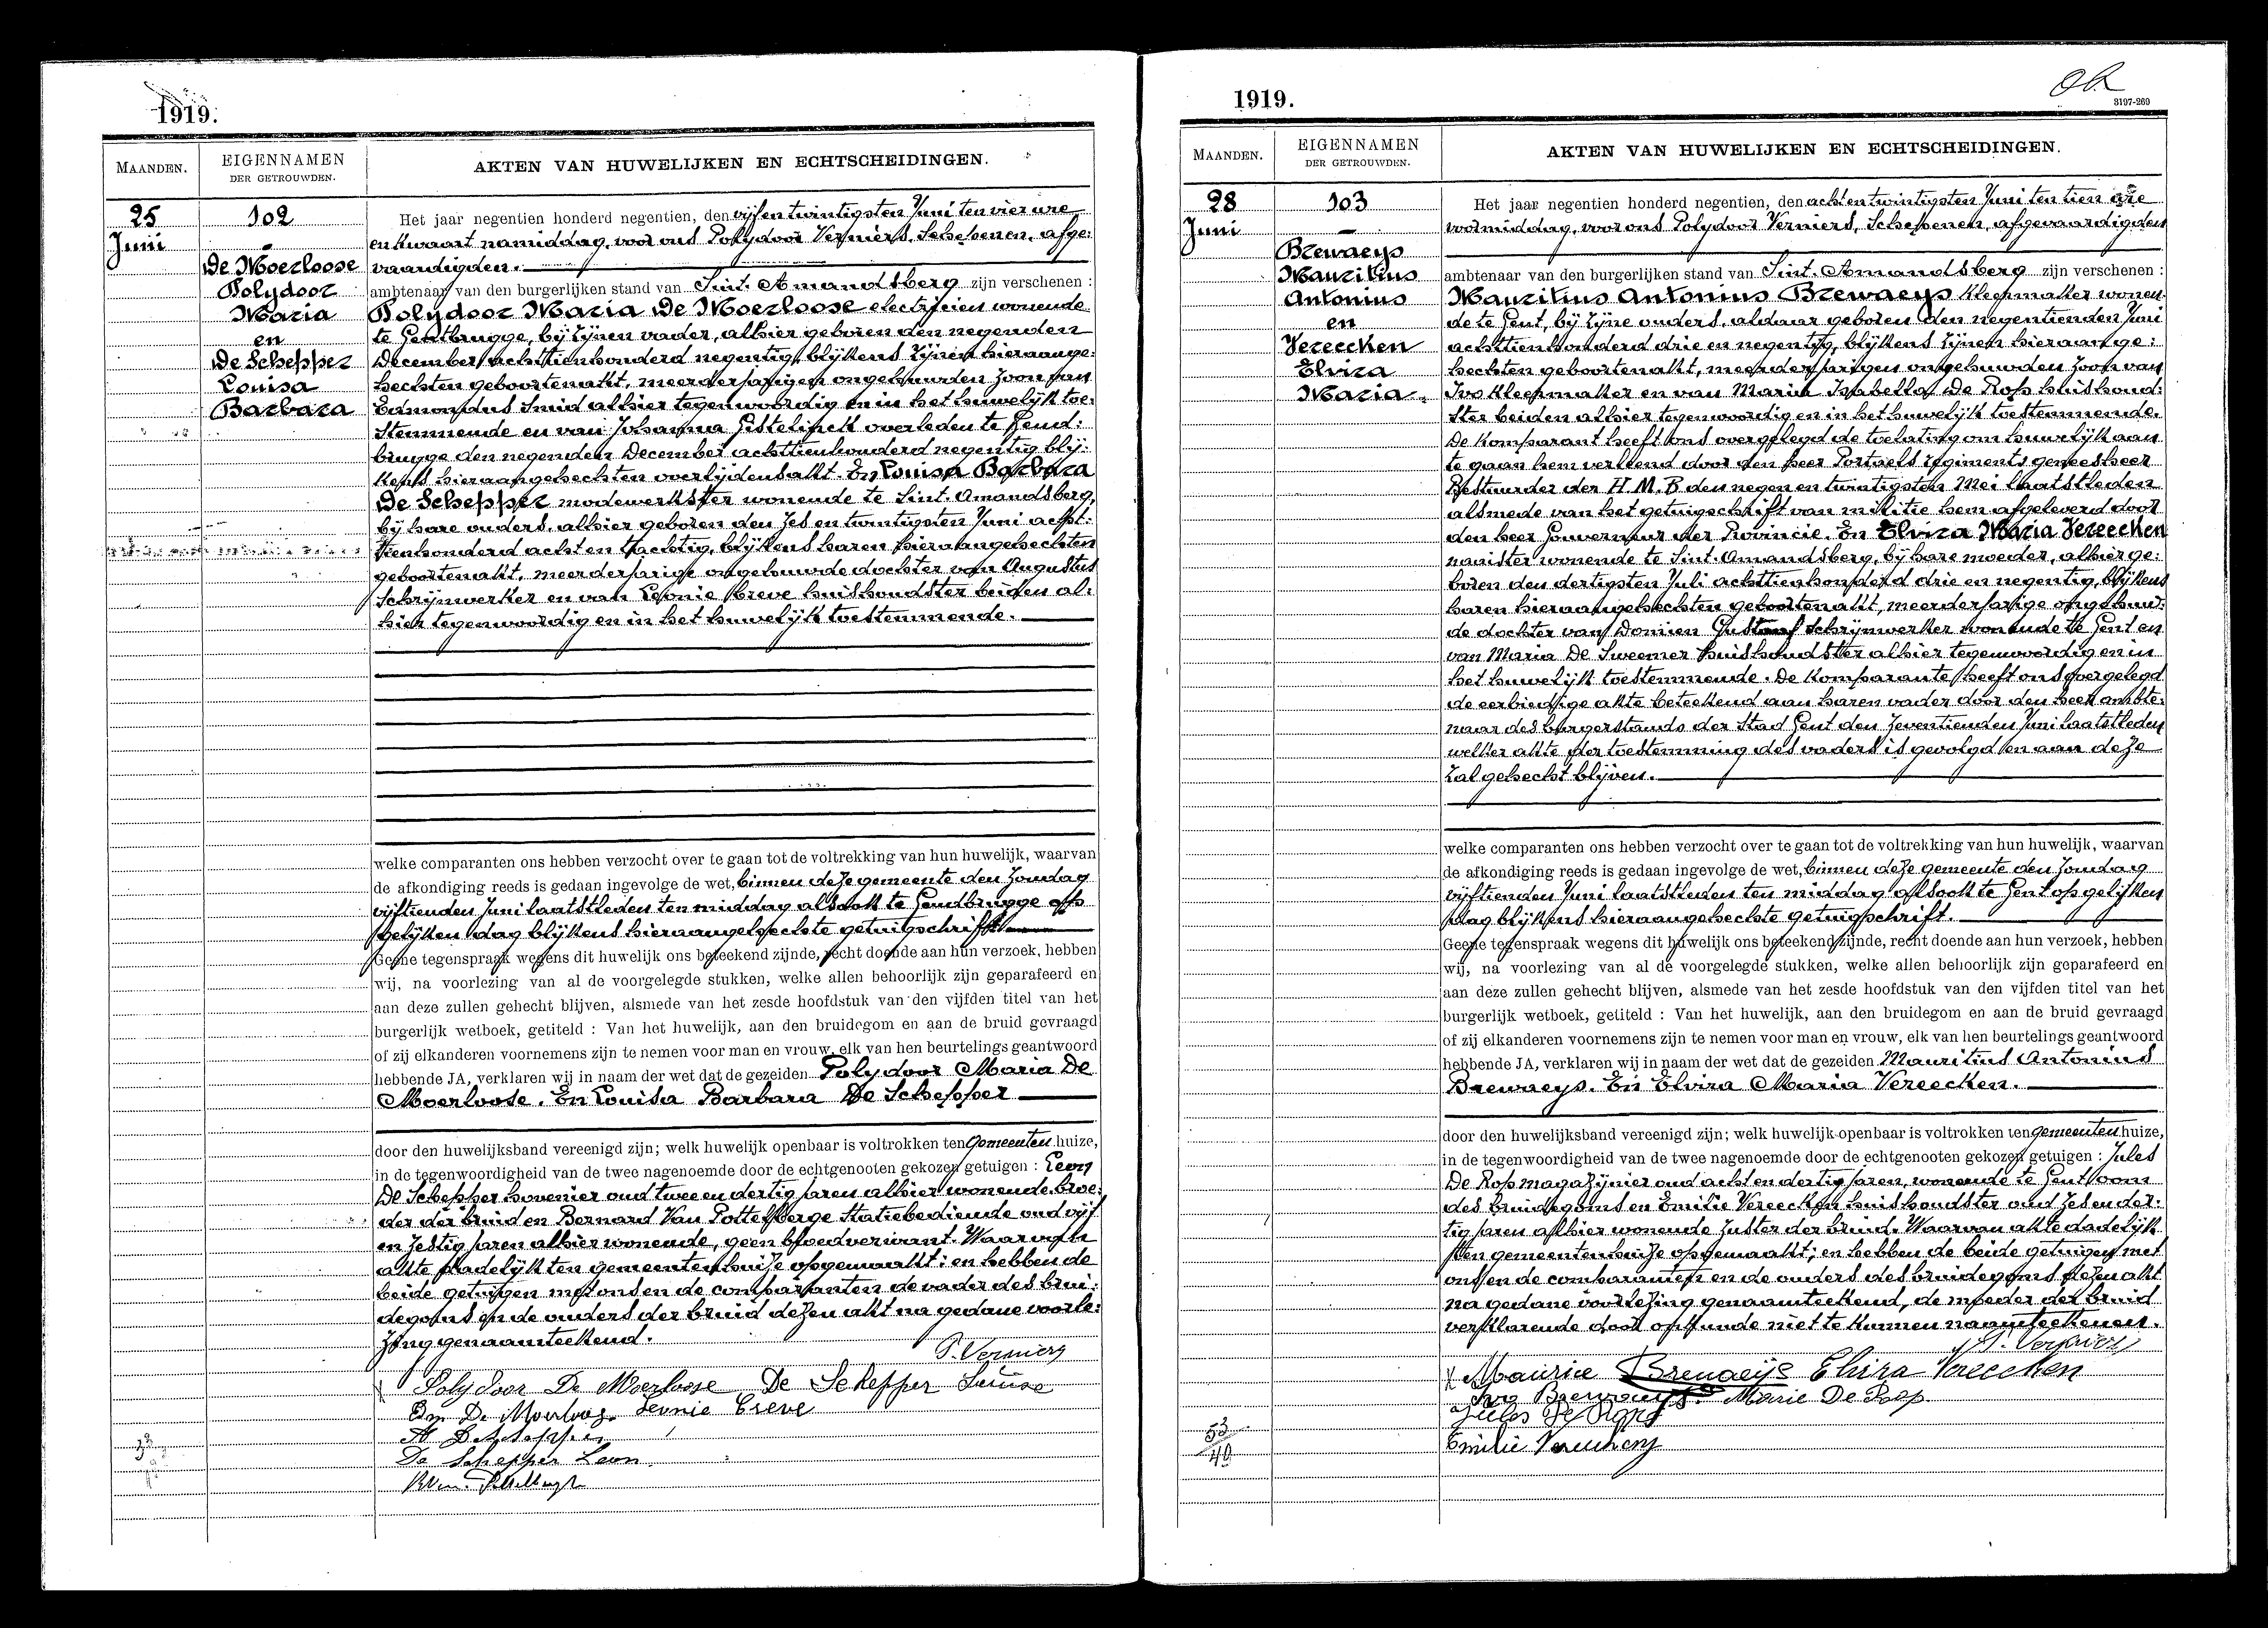 1919.
MAANDEN.
EIGENNAMEN
DER GETROUWDEN.
AKTEN VAN HUWELIJKEN EN ECHTSCHEIDINGEN.
25
Juni
102
De Moerloose
Polydoor
Maria
en
De Schepper
Louisa
Barbara
Het jaar negentien honderd negentien, den vijf en twintigsten Juni ten vier ure
en kwaart namiddag, voor ons Polydoor Verniers, Schepenen, afge:
vaardigden.
ambtenaar van den burgerlijken stand van Sint. Amandsberg zijn verschenen :
Polydoor Maria De Moerloose electricien wonende
te Gentbrugge, bij zijnen vader, alhier geboren den negenden
December achttienhonderd negentig, blijkens zijnen hieraange:
hechten geboortenakt, meerderjarigen ongehuurden zoon van
Edmondus Smid alhier tegenwoordig en in het huwelijk toe:
stemmende en van Johanna Gistelinck overleden te Gend:
brugge den negenden December achttienhonderd negentig blij:
kens hieraangehechten overlijdensakt. En Louisa Barbara
De Schepper modewerkster wonende te Sint. Amandsberg,
bij hare ouders, alhier geboren den zes en twintigsten Juni acht:
tienhonderd acht en tachtig, blijkens haren hieraangehechten
geboortenakt, meerderjarige ongehuwde dochter van Augustus
Schrijnwerker en van Leonie Creve huishoudster beiden al:
hier tegenwoordig en in het huwelijk toestemmende.
welke comparanten ons hebben verzocht over te gaan tot de voltrekking van hun huwelijk, waarvan
de afkondiging reeds is gedaan ingevolge de wet, binnen deze gemeente den Zondag
vijftienden Juni laatstleden ten middag alsook te Gendbrugge op
gelijken dag blijkens hieraangehechte getuigschrift.
Geene tegenspraak wegens dit huwelijk ons beteekend zijnde, recht doende aan hun verzoek, hebben
wij, na voorlezing van al de voorgelegde stukken, welke allen behoorlijk zijn geparafeerd en
aan deze zullen gehecht blijven, alsmede van het zesde hoofdstuk van den vijfden titel van het
burgerlijk wetboek, getiteld : Van het huwelijk, aan den bruidegom en aan de bruid gevraagd
of zij elkanderen voornemens zijn te nemen voor man en vrouw, elk van hen beurtelings geantwoord
hebbende JA, verklaren wij in naam der wet dat de gezeiden Polydoor Maria De
Moerloose. En Louisa Barbara De Schepper
door den huwelijksband vereenigd zijn; welk huwelijk openbaar is voltrokken ten Gemeenten huize,
in de tegenwoordigheid van de twee nagenoemde door de echtgenooten gekozen getuigen : Leon
De Schepper hovenier oud twee en dertig jaren alhier wonende broe:
der der bruid en Bernard Van Pottelberge Statiebediende oud vijf
en zestig jaren alhier wonende, geen bloedverwant. Waarvan
akte dadelijk ten gemeentenhuize opgemaakt; en hebben de
beide getuigen met ons en de comparanten de vader des brui:
degoms en de ouders der bruid dezen akt na gedane voorle:
zing genaamteekend.
P. Verniers
Polydoor De Moerloose De Schepper Louise
Edm De Moerloose Leonie Creve
A De Schepper
De Schepper Leon
1919.
3197-269
MAANDEN.
EIGENNAMEN
DER GETROUWDEN.
AKTEN VAN HUWELIJKEN EN ECHTSCHEIDINGEN.
28
Juni
103
Brewaeys
Mauritius
Antonius
en
Vereecken
Elvira
Maria
Het jaar negentien honderd negentien, den acht en twintigsten Juni ten tien ure
voormiddag, voor ons Polydoor Verniers, Schepenen, afgevaardigden
ambtenaar van den burgerlijken stand van Sint. Amandsberg zijn verschenen :
Mauritius Antonius Brewaeys Kleepmaker wonen
de te Gent, bij zijne ouders, aldaar geboren den negentienden Juni
achttienhonderd drie en negentig, blijkens zijnen hieraange:
hechten geboortenakt, meerderjarigen ongehuwden zoon van
Ivo Kleepmaker en van Maria Isabella De Rop huishoud:
ster beiden alhier tegenwoordig en in het huwelijk toestemmende.
De Komparant heeft ons overgelegd de toelating om huwelijk aan
te gaan hem verleend door den heer Portaels regiments geneesheer
Bestuurder der H.M.B den negen en twintigsten Mei laatstleden
alsmede van het getuigschrift van militie hem afgeleverd door
den heer Gouverneur der Provincie. En Elvira Maria Vereecken
naaister wonende te Sint. Amandsberg, bij hare moeder, alhier ge:
boren den dertigsten Juli achttienhonderd drie en negentig, blijkens
haren hieraangehechten geboortenakt, meerderjarige ongehuw:
de dochter van Domien Gustaaf Schrijnwerker wonende te Gent en
van Maria De Sweemer huishoudster alhier tegenwoordig en in
het huwelijk toestemmende. De Komparante heeft ons overgelegd
de eerbiedige akte beteekend aan haren vader door den heer ambte:
naar des burgerstands der Stad Gent den zeventienden Juni laatstleden
welker akte der toestemming des vaders is gevolgd en aan deze
zal gehecht blijven.
welke comparanten ons hebben verzocht over te gaan tot de voltrekking van hun huwelijk, waarvan
de afkondiging reeds is gedaan ingevolge de wet, binnen deze gemeente den Zondag
vijftienden Juni laatstleden ten middag alsook te Gent op gelijken
dag blijkens hieraangehechte getuigschrift.
Geene tegenspraak wegens dit huwelijk ons beteekend zijnde, recht doende aan hun verzoek, hebben
wij, na voorlezing van al de voorgelegde stukken, welke allen behoorlijk zijn geparafeerd en
aan deze zullen gehecht blijven, alsmede van het zesde hoofdstuk van den vijfden titel van het
burgerlijk wetboek, getiteld : Van het huwelijk, aan den bruidegom en aan de bruid gevraagd
of zij elkanderen voornemens zijn te nemen voor man en vrouw, elk van hen beurtelings geantwoord
hebbende JA, verklaren wij in naam der wet dat de gezeiden Mauritius Antonius
Brewaeys. En Elvira Maria Vereecken.
door den huwelijksband vereenigd zijn; welk huwelijk openbaar is voltrokken ten gemeenten huize,
in de tegenwoordigheid van de twee nagenoemde door de echtgenooten gekozen getuigen : Jules
De Rop magazijnier oud acht en dertig jaren, wonende te Gent oom
des bruidegoms en Emilie Vereecken huishoudster oud zes en der:
tig jaren alhier wonende zuster der bruid. Waarvan akte dadelijk
ten gemeentenhuize opgemaakt; en hebben de beide getuigen met
ons en de comparanten en de ouders des bruidegoms dezen akt
na gedane voorlezing genaamteekend, de moeder der bruid
verklarende door onkunde niet te kunnen naamteekenen.
P. Verniers
Maurice Brewaeijs Elvira Vereecken
Ivo Brewaeys. Marie De Rop
Jules De Rop
Emilie Vereecken
53
40